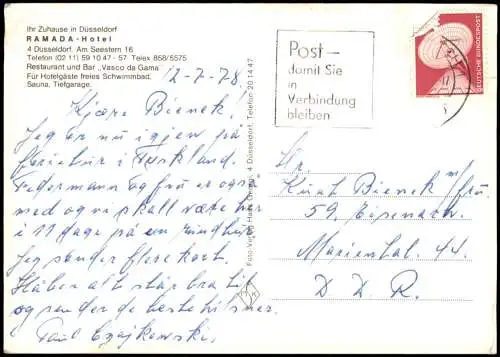 Ihr Zuhause in Düsseldorf
RAMADA-Hotel
4 Düsseldorf. Am Seestern 16
Telefon (02 11) 59 10 47 - 57 Telex 858/5575
Restaurant und Bar „Vasco da Gama"
Für Hotelgäste freies Schwimmbad,
Sauna, Tiefgarage.
12-7-78.
Kjære Bienek.
Jeg er nu igjen på
ferietur i Tyskland.
Federmann og fru er også
med og vi skall være her
i 11 dage på en rundtur
Jeg sender flere kort.
Håber alt står bra til
og sender de beste hilsner
Paul Czajkowski.
Foto-Verlag Hans Grimm, 4 Düsseldorf, Telefon 20 14 47
Post –
damit Sie
in
Verbindung
bleiben
DEUTSCHE BUNDESPOST
Hr.
Kurt Bienek m/fru
59. Eisenach.
Mariental. 44.
D. D. R.